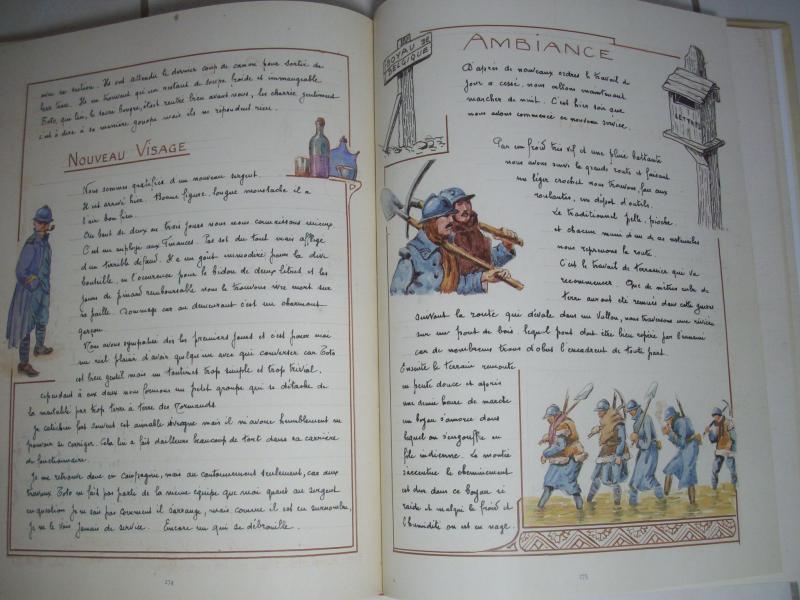 avec sa section. Ils ont attendu le dernier coup de canon pour sortir de
leur trou. Ils ne trouvent qu'un restant de soupe froide et immangeable.
Toto, qui lui, le sacré bougre, était rentré bien avant nous, les charrie gentiment
c'est à dire à sa manière
NOUVEAU VISAGE
Nous sommes gratifiés d'un nouveau sergent.
Il est arrivé hier. Bonne figure, longue moustache il a
l'air bon lieu.
Au bout de deux ou trois jours nous nous connaissons mieux.
C'est un employé aux Finances. Pas sot du tout mais affligé
d'un terrible défaut. Il a un goût immodéré pour la dive
bouteille, en l'occurence pour le bidon de deux litres et les
jours de pinard remboursable nous le trouvons ivre mort sur
sa paille. Dommage car au demeurant c'est un charmant
garçon.
Nous avons sympathisé dès les premiers jours et c'est pour moi
un réel plaisir d'avoir quelqu'un avec qui converser car Toto
est bien gentil mais un tantinet trop simple et trop trivial.
cependant à eux deux nous formons un petit groupe qui se détache de
la mentalité par trop terre à terre des Normands.
Je catéchise bien souvent cet aimable ivrogne mais il m'avoue humblement ne
pouvoir se corriger. Cela lui a fait d'ailleurs beaucoup de tort dans sa carrière
de fonctionnaire.
Je me retrouve donc en compagnie, mais au cantonnement seulement, car aux
travaux Toto ne fait pas partie de la même équipe que moi quant au sergent
en question je ne sais pas comment il s'arrange, mais comme il est en surnombre,
je ne le vois jamais de service. Encore un qui se débrouille.
174
BOYAU DE
BELGIQUE
AMBIANCE
LETTRES
D'après de nouveaux ordres le travail de
jour a cessé. nous allons maintenant
marcher de nuit. C'est hier soir que
nous avons commencé ce nouveau service.
Par un froid très vif et une pluie battante
nous avons suivi la grande route et faisant
un léger crochet nous trouvons, face aux
roulantes, un dépôt d'outils.
Le traditionnel pelle, pioche
et chacun muni d'un de ces ustensiles
nous reprenons la route.
C'est le travail de terrassier qui va
recommencer. Que de mètres cubes de
terre auront été remués dans cette guerre
suivant la route qui dévale dans un Vallon, nous traversons une rivière
sur un pont de bois lequel pont doit être bien repéré par l'ennemi
car de nombreux trous d'obus l'encadrent de toute part.
Ensuite le terrain remonte
en pente douce et après
une demie heure de marche
un boyau s'amorce dans
lequel on s'engouffre en
file indienne. La montée
s'accentue le cheminement
est dur dans ce boyau si
raide et malgré le froid et
l'humidité on est en nage.
175